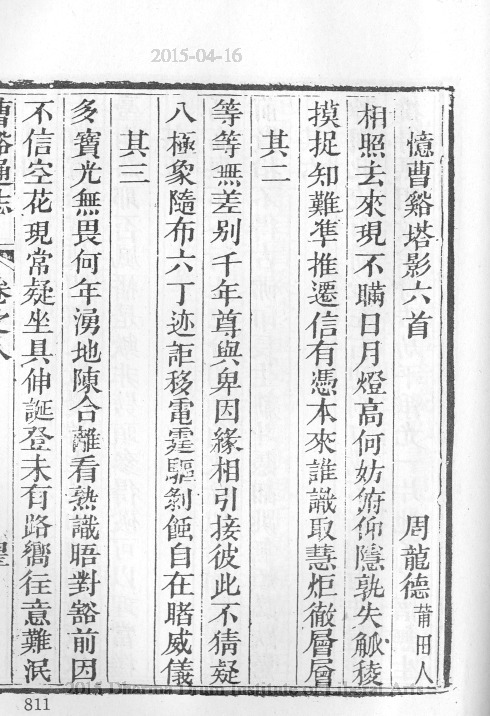 2015-04-16
憶曹谿塔影六首 周龍德莆田人
相照去來現不瞞日月燈高何妨俯仰隱孰失觚稜
摸捉知難準推遷信有憑本來誰識取慧炬徹層層
其二
等等無差别千年尊與卑因緣相引接彼此不猜疑
八極象隨布六丁迹詎移電霆驅剝蝕自在睹威儀
其三
多寶光無畏何年湧地陳合離看熟識晤對豁前因
不信空花現常疑坐具伸誕登未有路嚮往意難泯
曹谿通志 卷之八
811
2015 Dharma Drum Institute of Liberal Arts